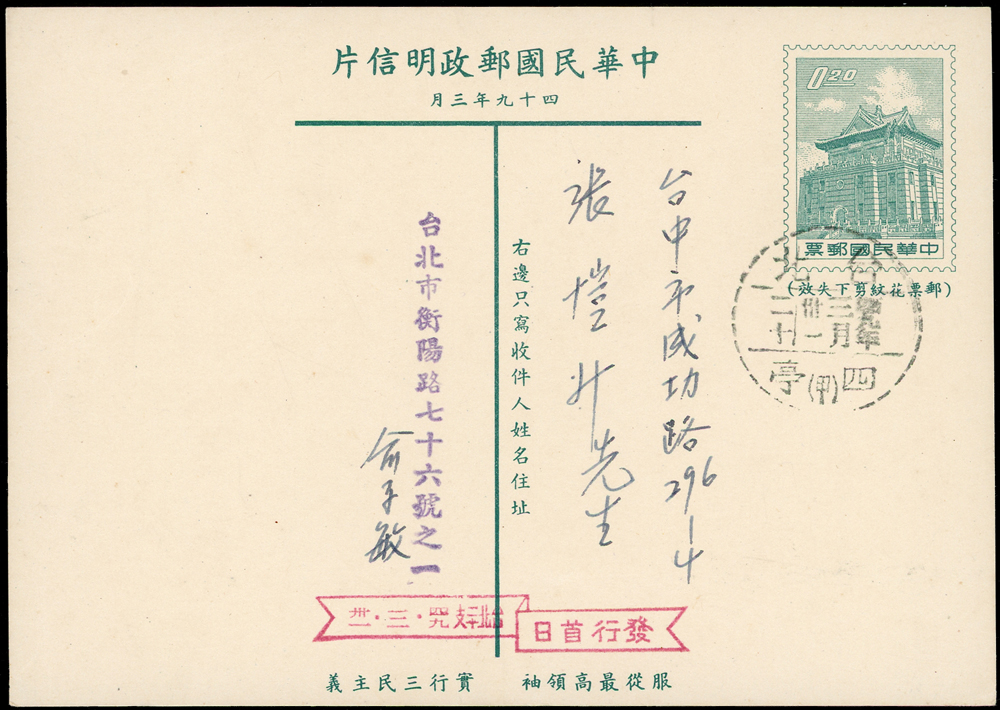 中華民國郵政明信片
四十九年三月
0.20
中華民國郵票
(郵票花紋剪下失效)
台中市成功路296-4
張愷升先生
右邊只寫收件人姓名住址
台北市衡陽路七十六號之一
俞子敏
台北
三月
卅一
二十
四亭
(甲)
發行首日
台北三支 四九・三・卅一
服從最高領袖 實行三民主義